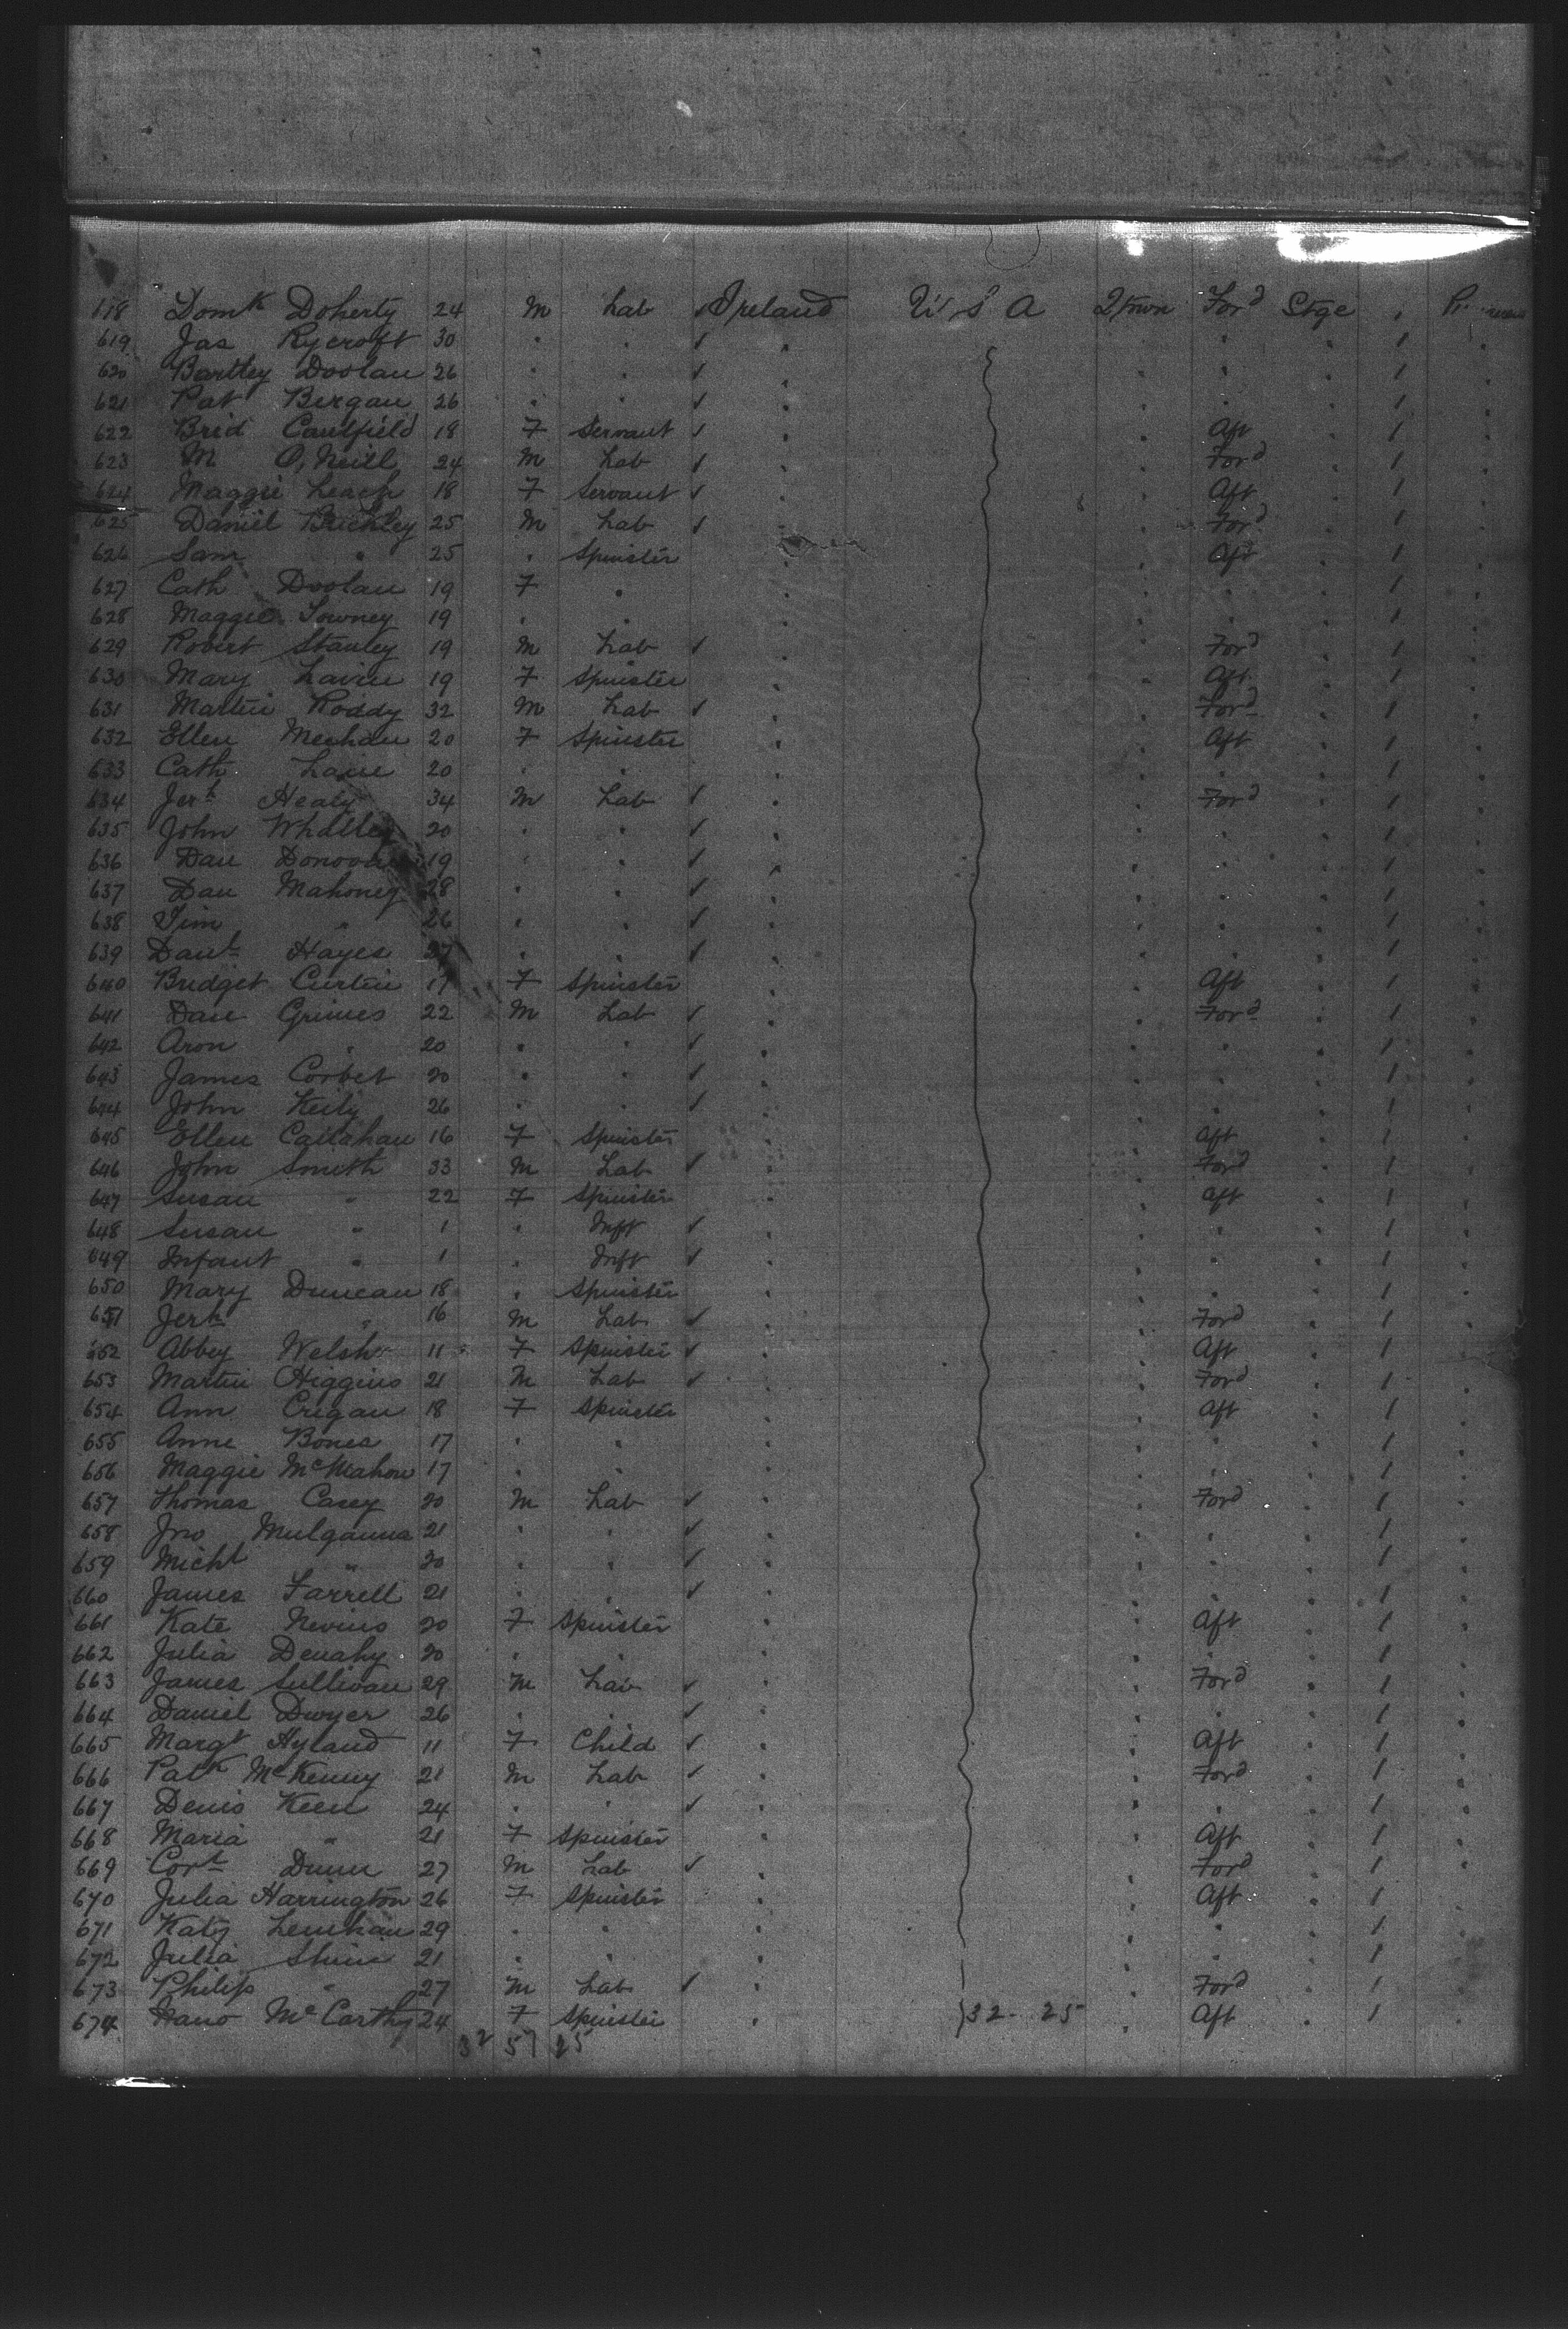 618 Domk Doherty 24 M Lab ✓ Ireland U S A Qtown Ford Stge 1
619 Jas Rycroft 30 " " ✓ " " " " 1 "
620 Bartley Doolan 26 " " ✓ " " " " 1 "
621 Pat Bergan 26 " " ✓ " " " " 1 "
622 Brid Caulfield 18 F Servant ✓ " " Aft " 1 "
623 M O'Neill 24 M Lab ✓ " " Ford " 1 "
624 Maggie Leach 18 F Servant ✓ " " Aft " 1 "
625 Daniel Buckley 25 M Lab ✓ " " Ford " 1 "
626 Sam " 25 " Spinster " " Aft " 1 "
627 Cath Doolan 19 F " " " " " 1 "
628 Maggie Towney 19 " " " " " " 1 "
629 Robert Stanley 19 M Lab ✓ " " Ford " 1 "
630 Mary Lavin 19 F Spinster " " Aft " 1 "
631 Martin Roddy 32 M Lab ✓ " " Ford " 1 "
632 Ellen Meehan 20 F Spinster " " Aft " 1 "
633 Cath Lane 20 " " " " " " 1 "
634 Jerh Healy 34 M Lab ✓ " " Ford " 1 "
635 John 20 " " ✓ " " " " 1 "
636 Dan Donovan 19 " " ✓ " " " " 1 "
637 Dan Mahoney 28 " " ✓ " " " " 1 "
638 Tim " 26 " " ✓ " " " " 1 "
639 Danl Hayes 27 " " ✓ " " " " 1 "
640 Bridget Curtin 17 F Spinster " " Aft " 1 "
641 Dan Grimes 22 M Lab ✓ " " Ford " 1 "
642 Aron " 20 " " ✓ " " " " 1 "
643 James Corbet 20 " " ✓ " " " " 1 "
644 John Keily 26 " " ✓ " " " " 1 "
645 Ellen Callahan 16 F Spinster " " Aft " 1 "
646 John Smith 33 M Lab ✓ " " Ford " 1 "
647 Susan " 22 F Spinster " " Aft " 1 "
648 Susan " 1 " Inft ✓ " " " " 1 "
649 Infant " 1 " Inft ✓ " " " " 1 "
650 Mary Duncan 18 " Spinster " " " " 1 "
651 Jerh " 16 M Lab ✓ " " Ford " 1 "
652 Abbey Welsh 11 F Spinster ✓ " " Aft " 1 "
653 Martin Higgins 21 M Lab ✓ " " Ford " 1 "
654 Ann Crigan 18 F Spinster " " Aft " 1 "
655 Anne Bones 17 " " " " " " 1 "
656 Maggie McMahon 17 " " " " " " 1 "
657 Thomas Casey 20 M Lab ✓ " " Ford " 1 "
658 Jno Mulganna 21 " " ✓ " " " " 1 "
659 Michl " 20 " " ✓ " " " " 1 "
660 James Farrell 21 " " ✓ " " " " 1 "
661 Kate Nevins 20 F Spinster " " Aft " 1 "
662 Julia Denahy 20 " " " " " " 1 "
663 James Sullivan 29 M Lab ✓ " " Ford " 1 "
664 Daniel Dwyer 26 " " ✓ " " " " 1 "
665 Margt Hyland 11 F Child ✓ " " Aft " 1 "
666 Patk McKenny 21 M Lab ✓ " " Ford " 1 "
667 Denis Keen 24 " " ✓ " " " " 1 "
668 Maria " 21 F Spinster " " Aft " 1 "
669 Cort Dunn 27 M Lab ✓ " " Ford " 1 "
670 Julia Harrington 26 F Spinster " " Aft " 1 "
671 Katy Lenihan 29 " " " " " " 1 "
672 Julia Shine 21 " " " " " " 1 "
673 Philip " 27 M Lab ✓ " " Ford " 1 "
674 McCarthy 24 F Spinster " 32 - 25 " Aft 1 "
32 57 25